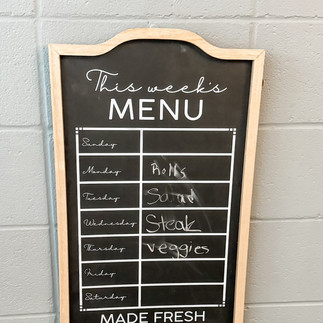 This week's
MENU
Sunday
Monday Rolls
Tuesday Salad
Wednesday Steak
Thursday Veggies
Friday
Saturday
MADE FRESH